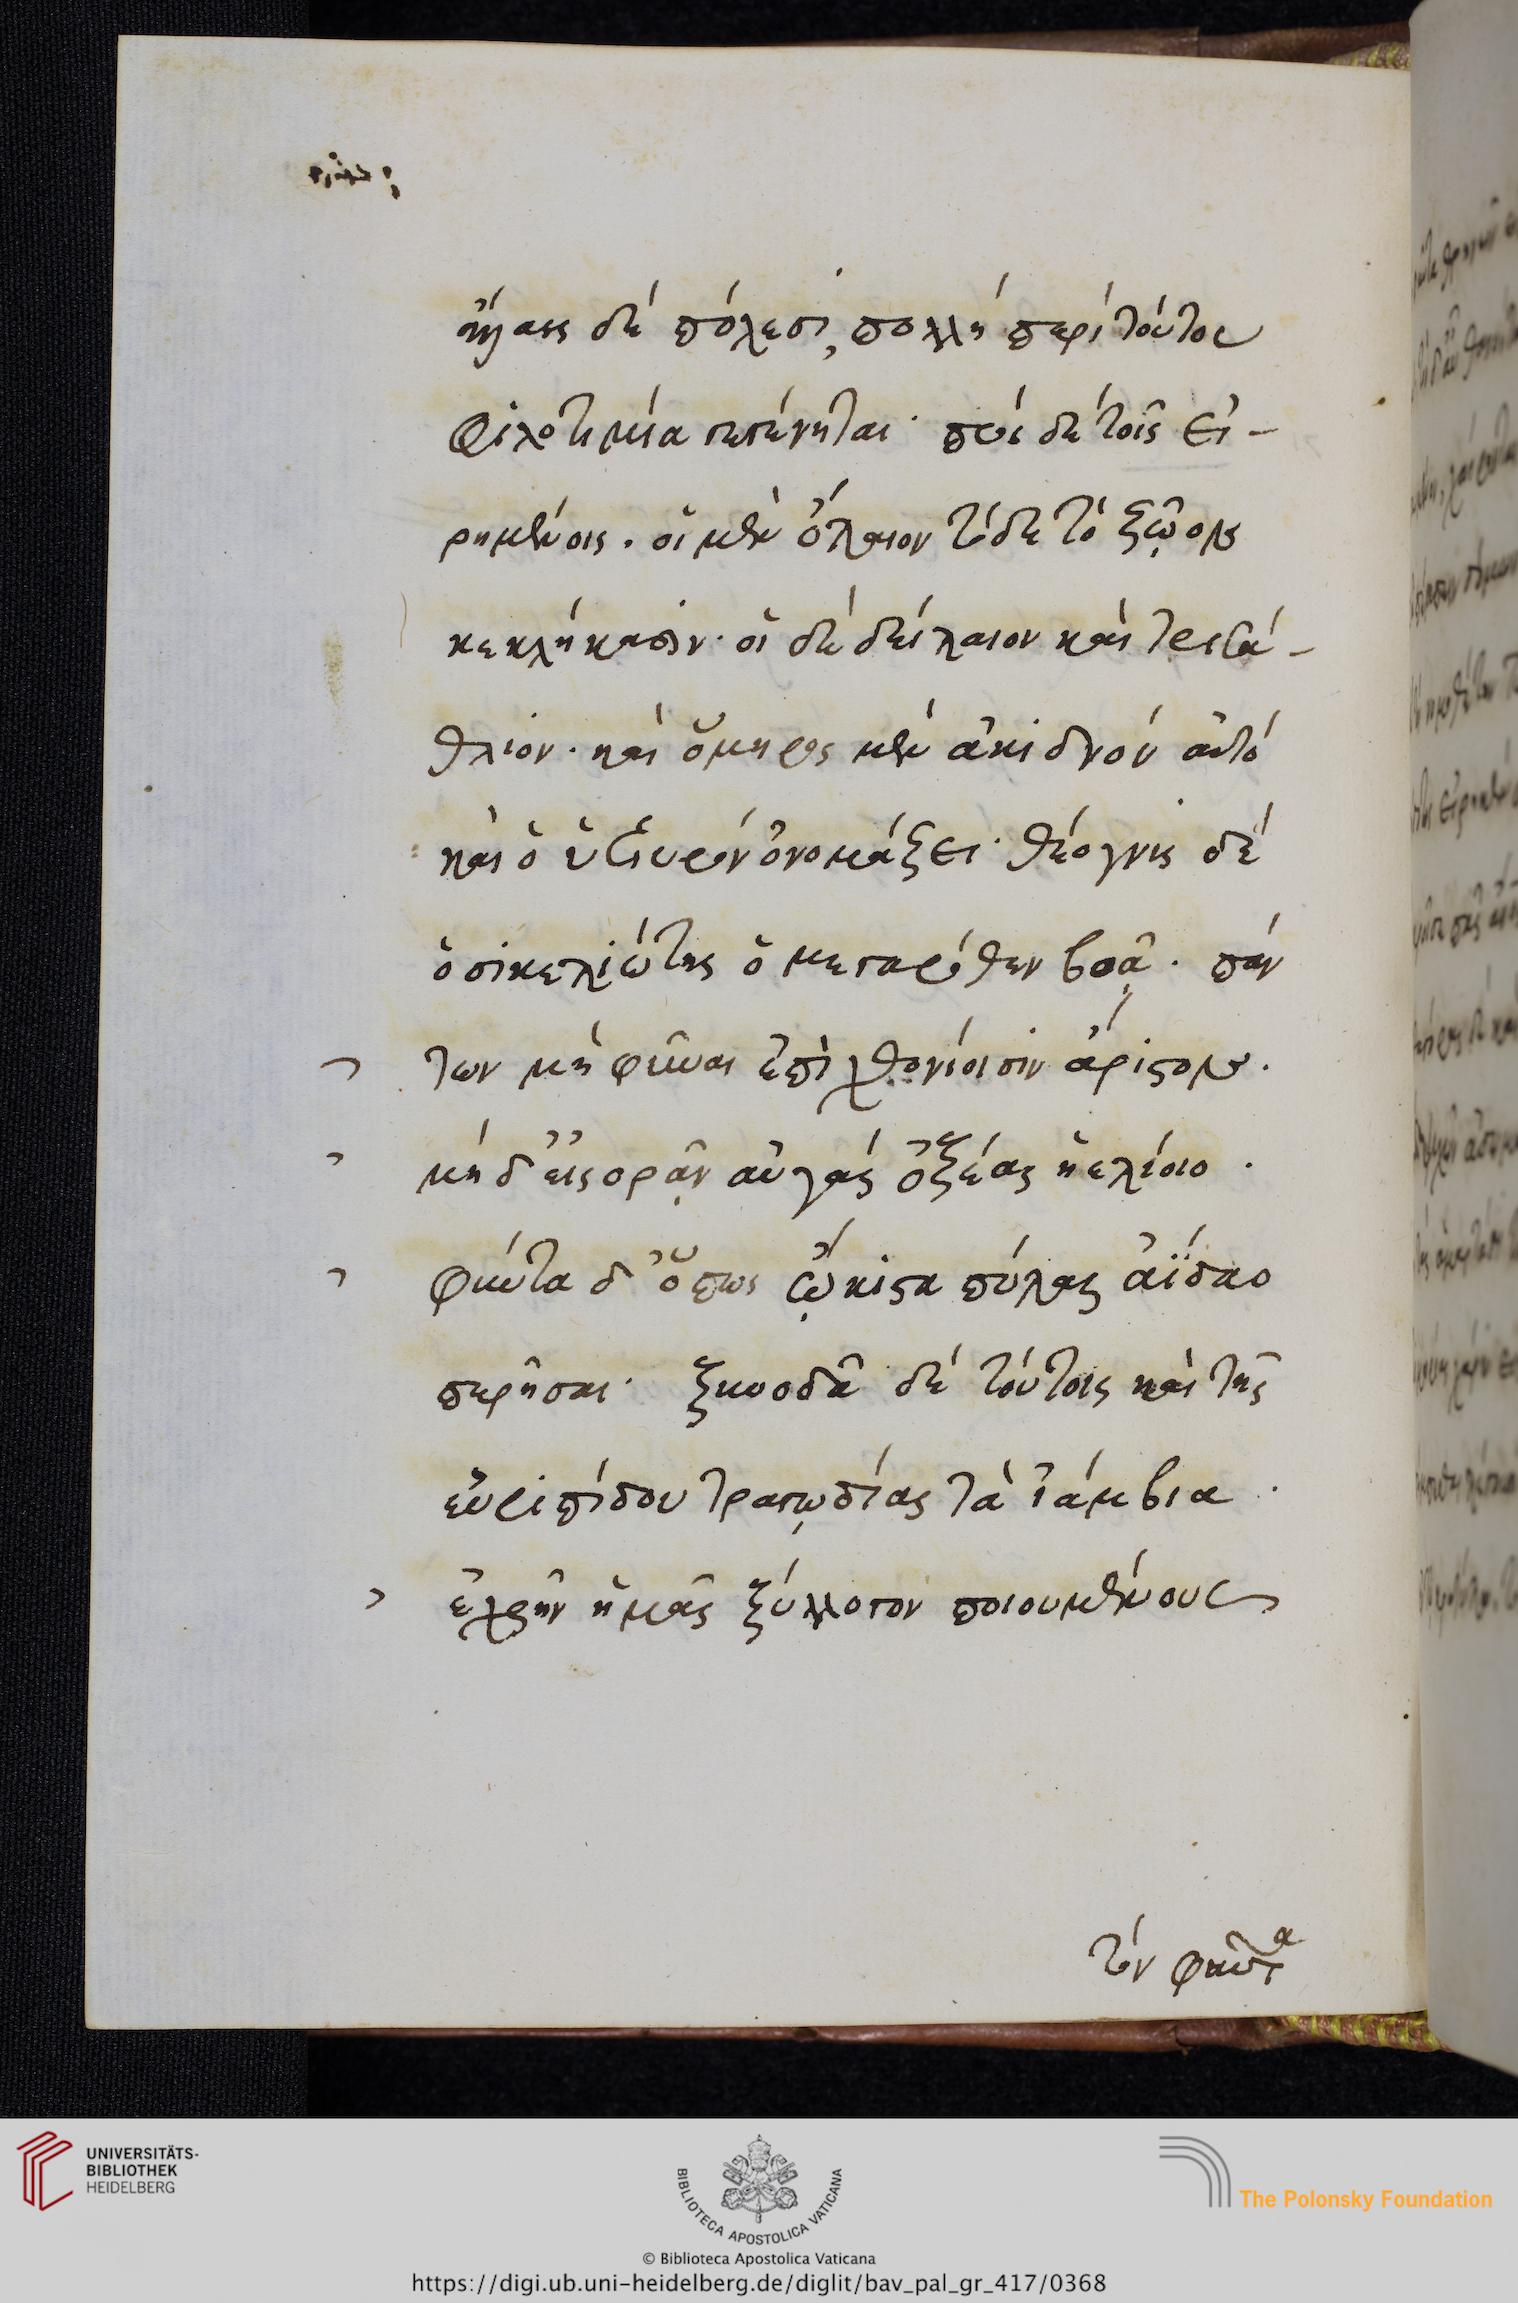 πόλεσι, πολλὴ περὶ τούτου
φιλοτιμία γεγένηται· πρὸς δὲ τοῖς εἰ-
ρημένοις. οἱ μὲν τόδε τὸ ζῷον
κεκλήκασιν· οἱ δὲ δείλαιον καὶ τρισά-
θλιον· καὶ ὅμηρος μὲν ἀκιδνόν αὐτὸ
καὶ ὀϊζυρόν ὀνομάζει· θέογνις δὲ
ὁ σικελιώτης ὁ μεγαρόθεν βοᾷ. πάν
των μὴ φῦναι ἐπιχθονίοισιν ἄριστον.
μὴ δ' εἰςορᾶν αὐγὰς ὀξέας ἠελίοιο.
φύντα δ' ὅπως ᾤκιστα πύλας ἀΐδαο
περῆσαι· ξυνοδᾶ δὲ τούτοις καὶ τῆς
εὐριπίδου τραγῳδίας τὰ ἰάμβια.
ἐχρῆν ἡμᾶς ξύλλογον ποιουμένους
τὸν φύντα
UNIVERSITÄTS-
BIBLIOTHEK
HEIDELBERG
BIBLIOTECA APOSTOLICA VATICANA
The Polonsky Foundation
© Biblioteca Apostolica Vaticana
https://digi.ub.uni-heidelberg.de/diglit/bav_pal_gr_417/0368